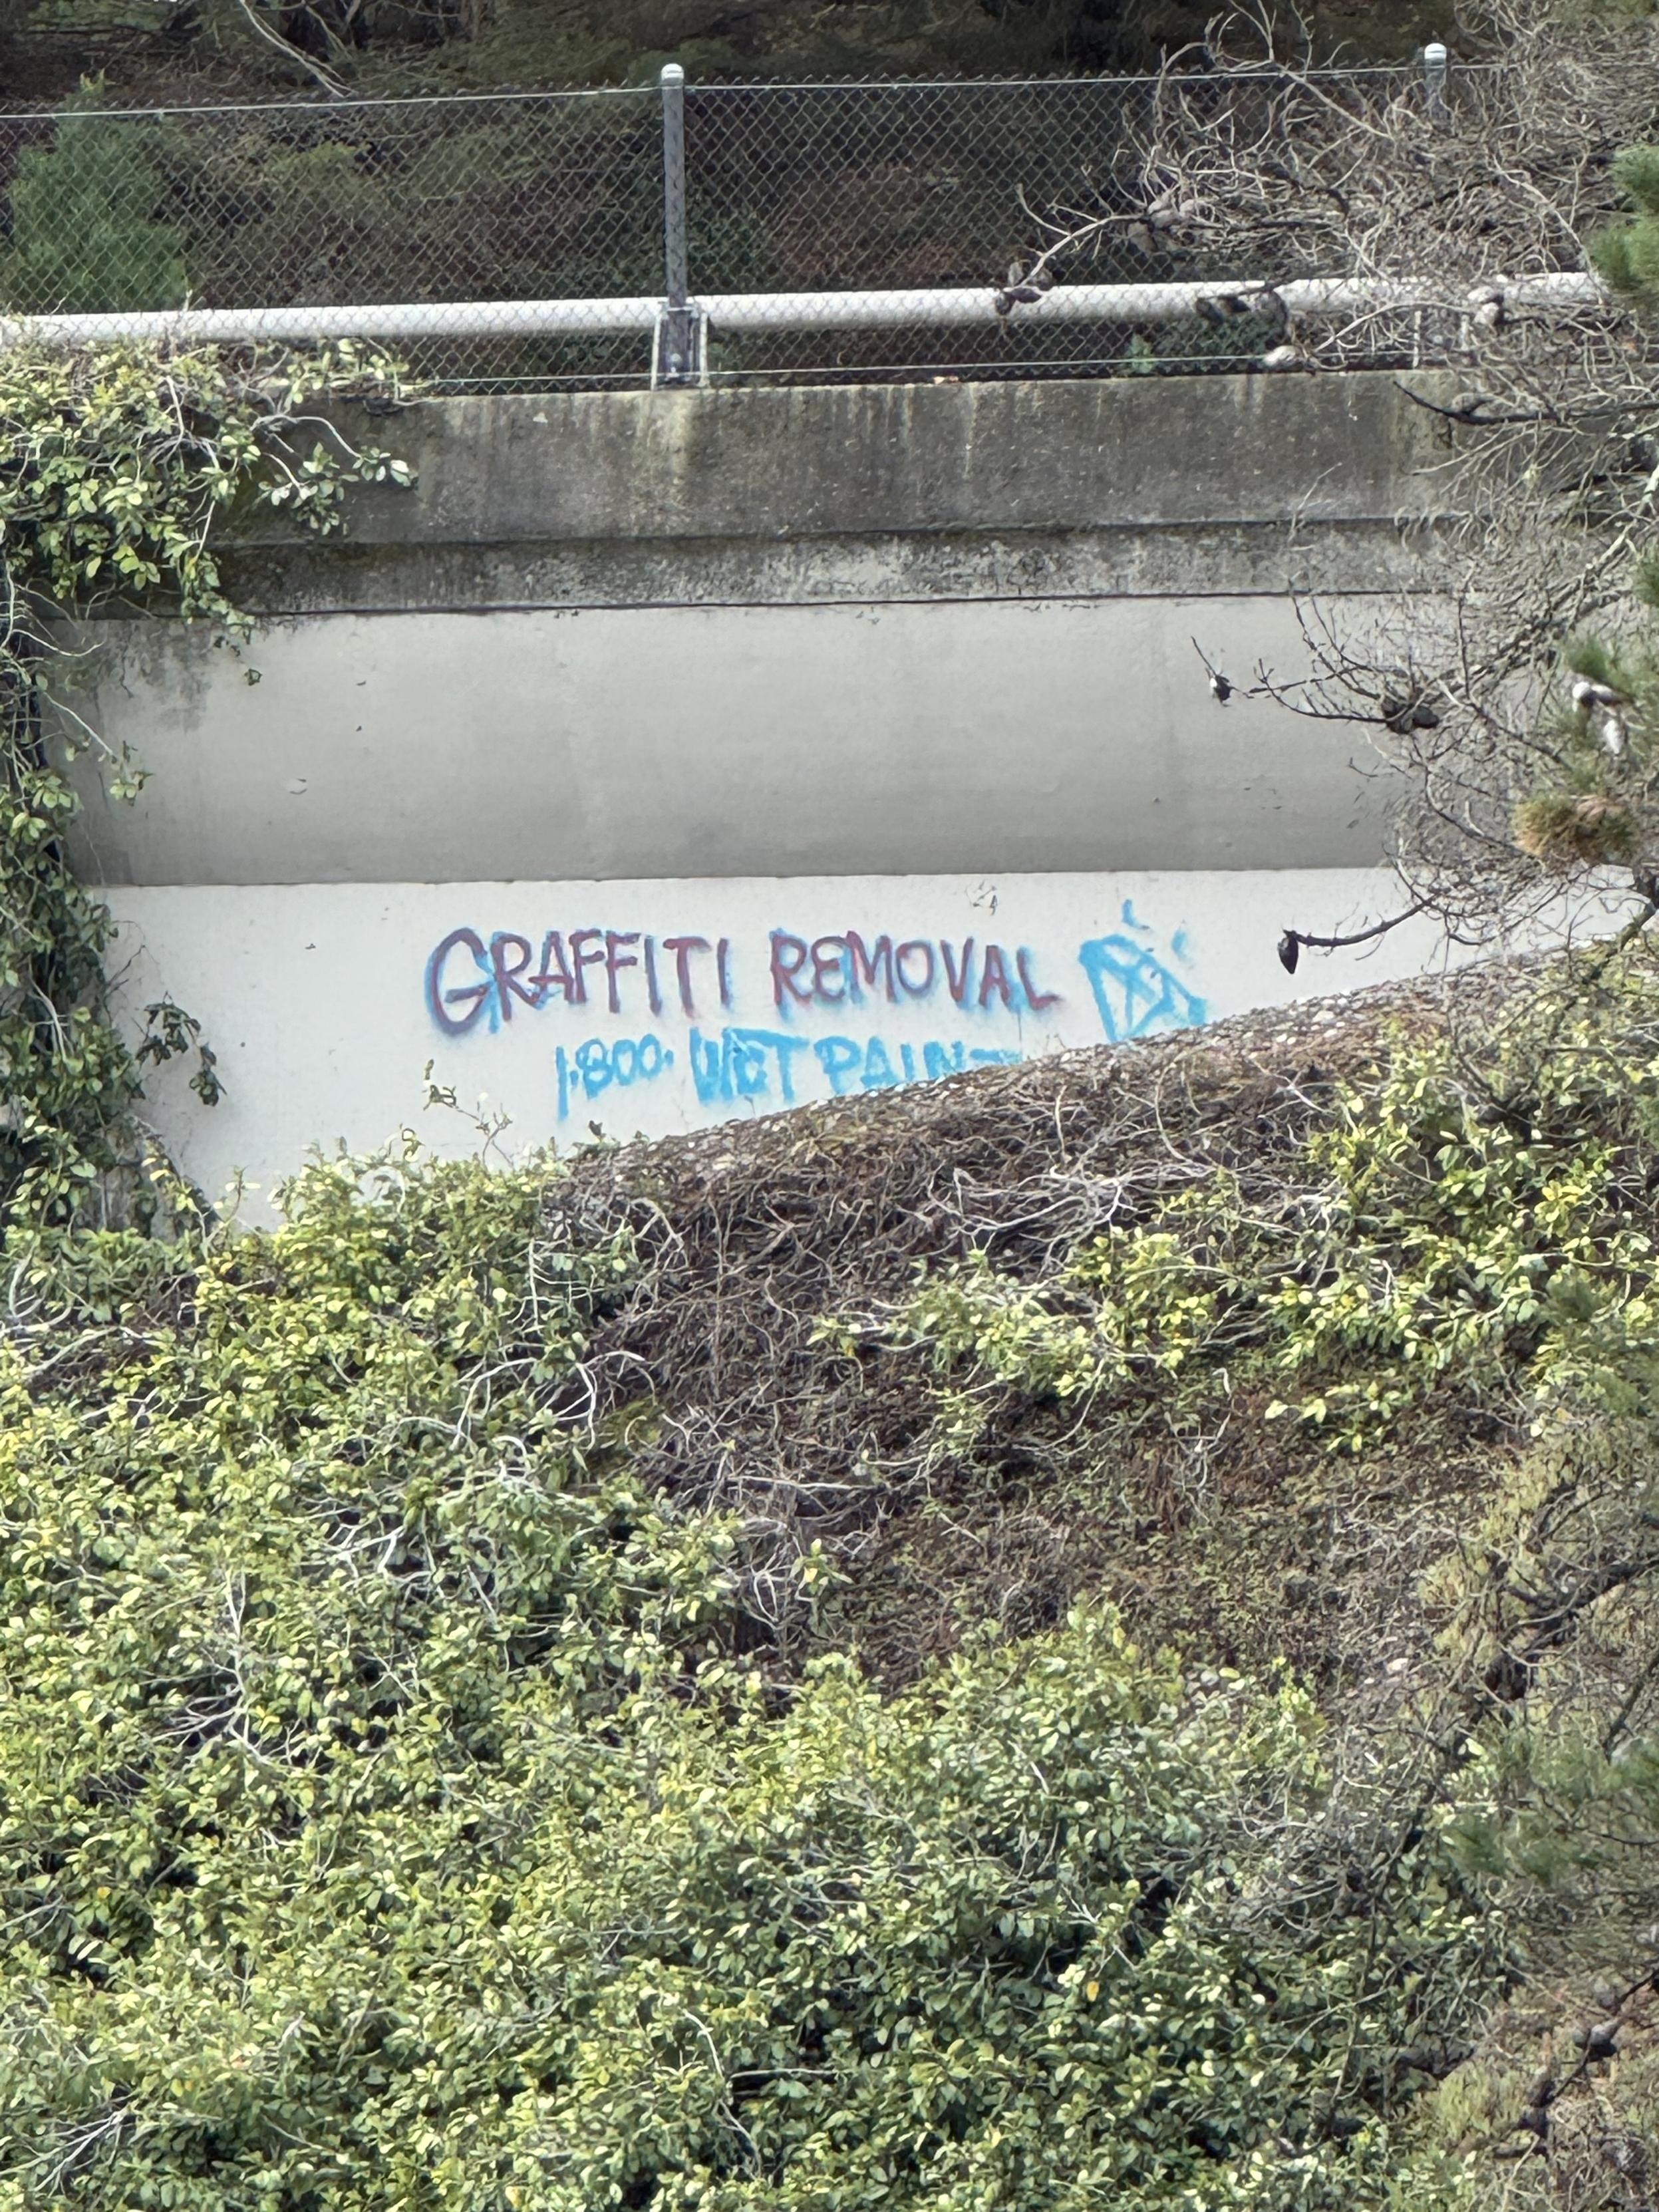 GRAFFITI REMOVAL
1·800· WET PAINT